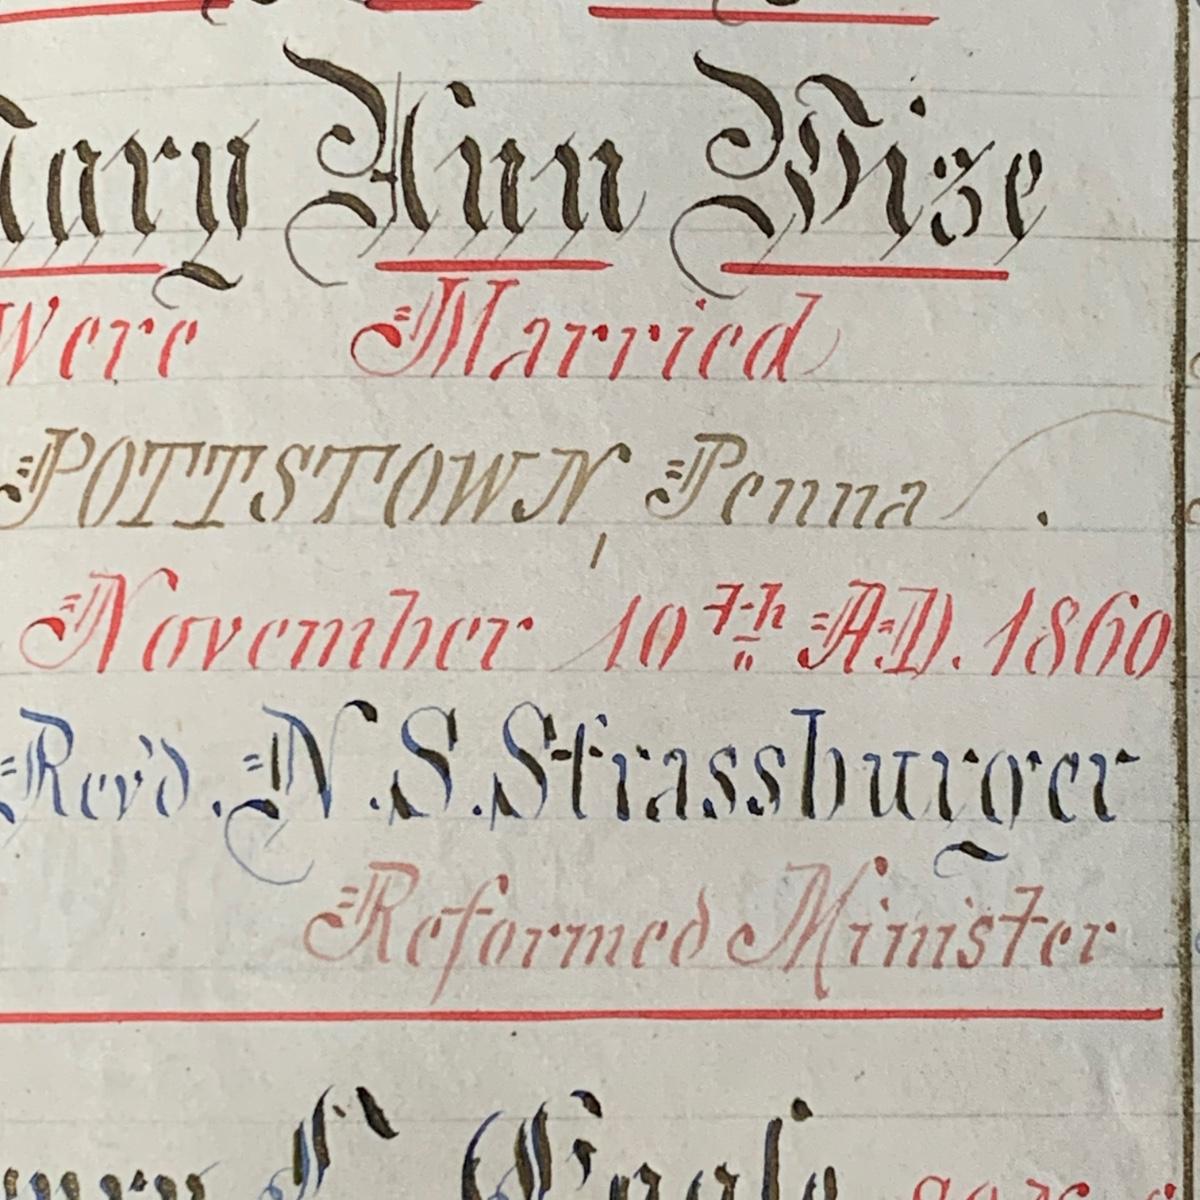 Mary Ann Wise
Were Married
POTTSTOWN, Penna.
November 10th A.D. 1860
Rev'd. N.S. Strassburger
Reformed Minister